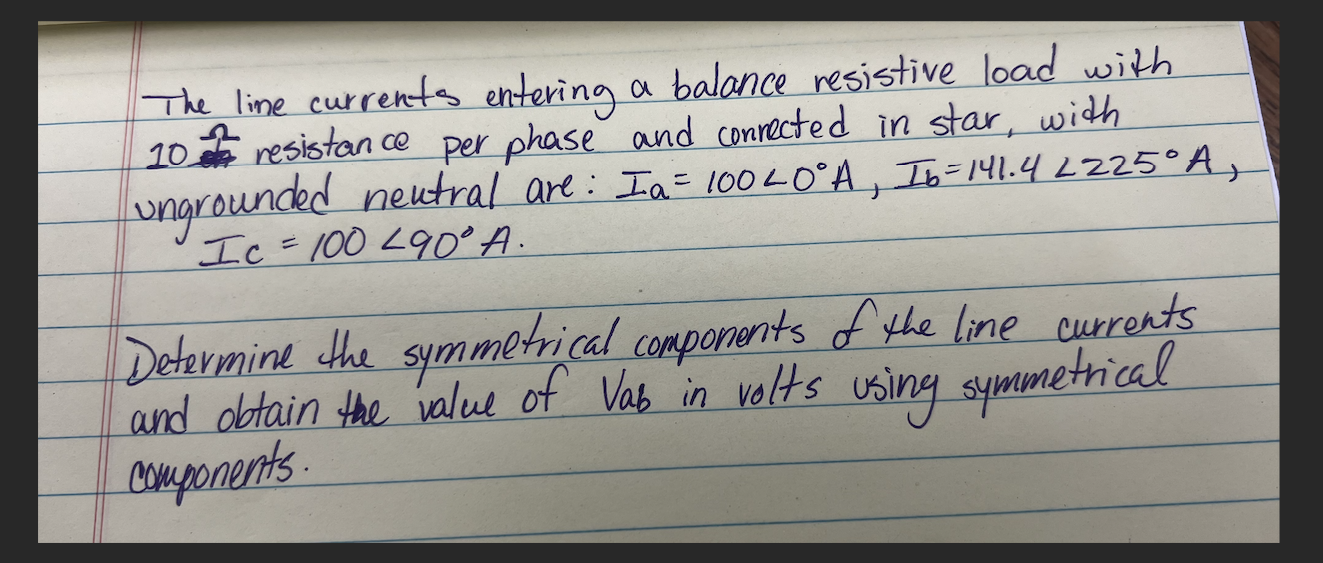 The line currents entering a balance resistive load with
10 Ω resistance per phase and connected in star, with
ungrounded neutral are: Ia = 100∠0° A, Ib = 141.4∠225° A,
Ic = 100∠90° A.
Determine the symmetrical components of the line currents
and obtain the value of Vab in volts using symmetrical
components.